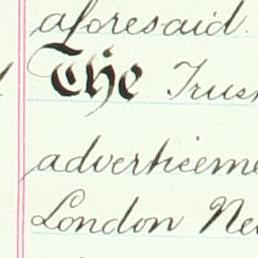 aforesaid.
The Trus
adverticeme
London Ne